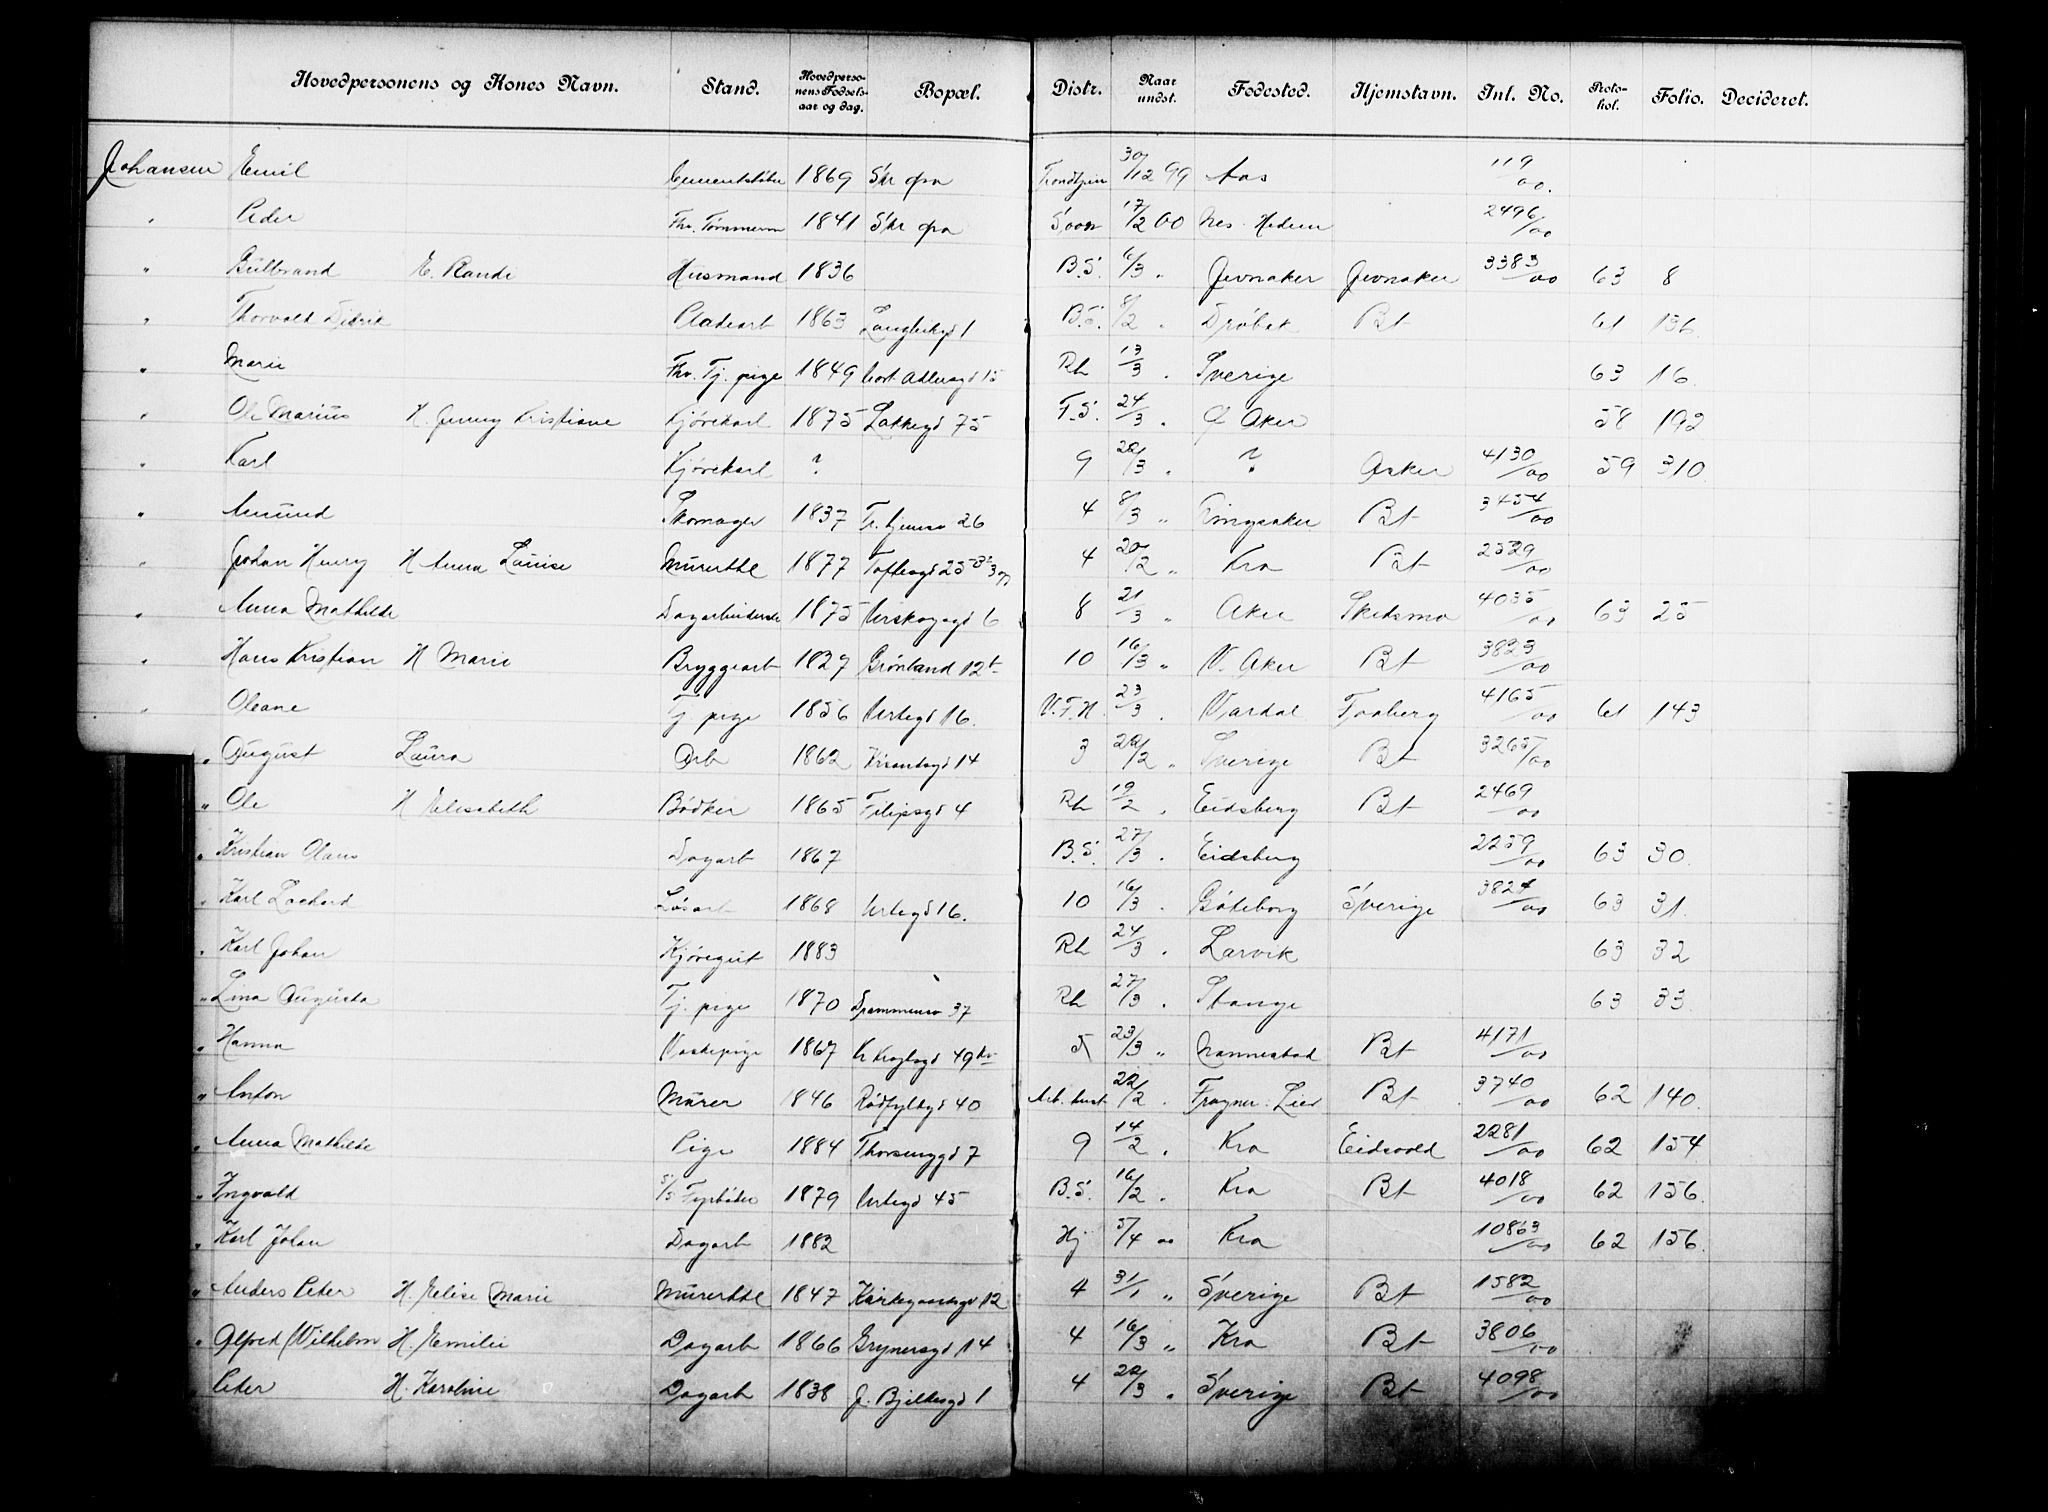 Hovedpersonens og Kones Navn. Stand. Hovedperso-nens Fødsels-aar og dag. Bopæl. Distr. Naar undst. Fødested. Hjemstavn. Inl. No. Proto-kol. Folio. Decideret.
Johansen Emil 1869 Skr fra Trondhjem 30/12 99 Aas 119/00.
" Peder Fhv. Tømmerm 1841 Skr fra 17/2 00 Nes. Hedem 2496/00
" Gulbrand E. Randi Husmand 1836 B.S. 6/3 " Jevnaker Jevnaker 3383/00 63 8
" Thorvald Didrik Pladearb 1863 Langliegd 1 B.S. 8/2 " Drøbak Bt 61 136.
" Marie Fhv. Tj. pige 1849 Cort Adlersgd 15 Rh 13/3 " Sverige 63 16.
" Ole Marius H. Jenny Kristiane Kjørekarl 1875 Lakkegd 75 F.S. 24/3 " Ø Aker 58 192
" Karl Kjørekarl ? 9 22/3 " ? Asker 4130/00 59 310
" Amund Skomager 1837 Tr.hjemsv 26 4 8/3 " Ringsaker Bt 3454/00
" Johan Henry H Anna Louise Murerhdl 1877 Toftesgd 25 4 20/2 " Kra Bt 2529/00
" Anna Mathilde Dagarbeiderske 1875 6 8 21/3 " Aker Skedsmo 4035/00 63 25
" Hans Kristian H Marie Bryggearb 1827 Grønland 12 10 16/3 " V. Aker Bt 3823/00
" Oleane Tj pige 1856 Urtegd 16. V.F.H. 23/3 " Vardal Faaberg 4165/00 61 143
" August Laura Arb 1862 Krsandsgd 14 3 22/2 " Sverige Bt 3265/00
" Ole H Elisabeth Bødker 1865 Filipsgd 4 Rh 19/2 " Eidsberg Bt 2469/00
" Kristian Olaus Dagarb 1867 B.S. 27/3 " Eidsberg 2259/00 63 30.
" Karl Zachard Løsarb 1868 Urtegd 16. 10 16/3 " Göteborg Sverige 3824/00 63 31.
" Karl Johan Kjøregut 1883 Rh 24/3 " Larvik 63 32
" Lina Augusta Tj. pige 1870 Drammensv 37 Rh 27/3 " Stange 63 33
" Hanna Vaskepige 1867 49 5 23/3 " Nannestad Bt 4171/00
" Anton Murer 1846 Rødfyldgd 40 Arb. anst 22/2 " Frogner. Lier Bt 3740/00 62 140.
" Anna Mathilde Pige 1884 Thorsenggd 7 9 14/2 " Kra Eidsvold 2281/00 62 154
" Ingvald S/S Fyrbøder 1879 Urtegd 45 B.S. 16/2 " Kra Bt 4018/00 62 156.
" Karl Johan Dagarb 1882 Hj 5/4 00 Kra 10863/00 62 156.
" Anders Peter H. Elise Marie Murerhdl 1847 Kirkegaardsgd 12 4 31/1 " Sverige Bt 1582/00
" Alfred Wilhelm H. Emilie Dagarb 1866 Grynersgd 14 4 16/3 " Kra Bt 3806/00
" Peder H. Karoline Dagarb 1838 J. Bjelkesgd 1 4 22/3 " Sverige Bt 4098/00